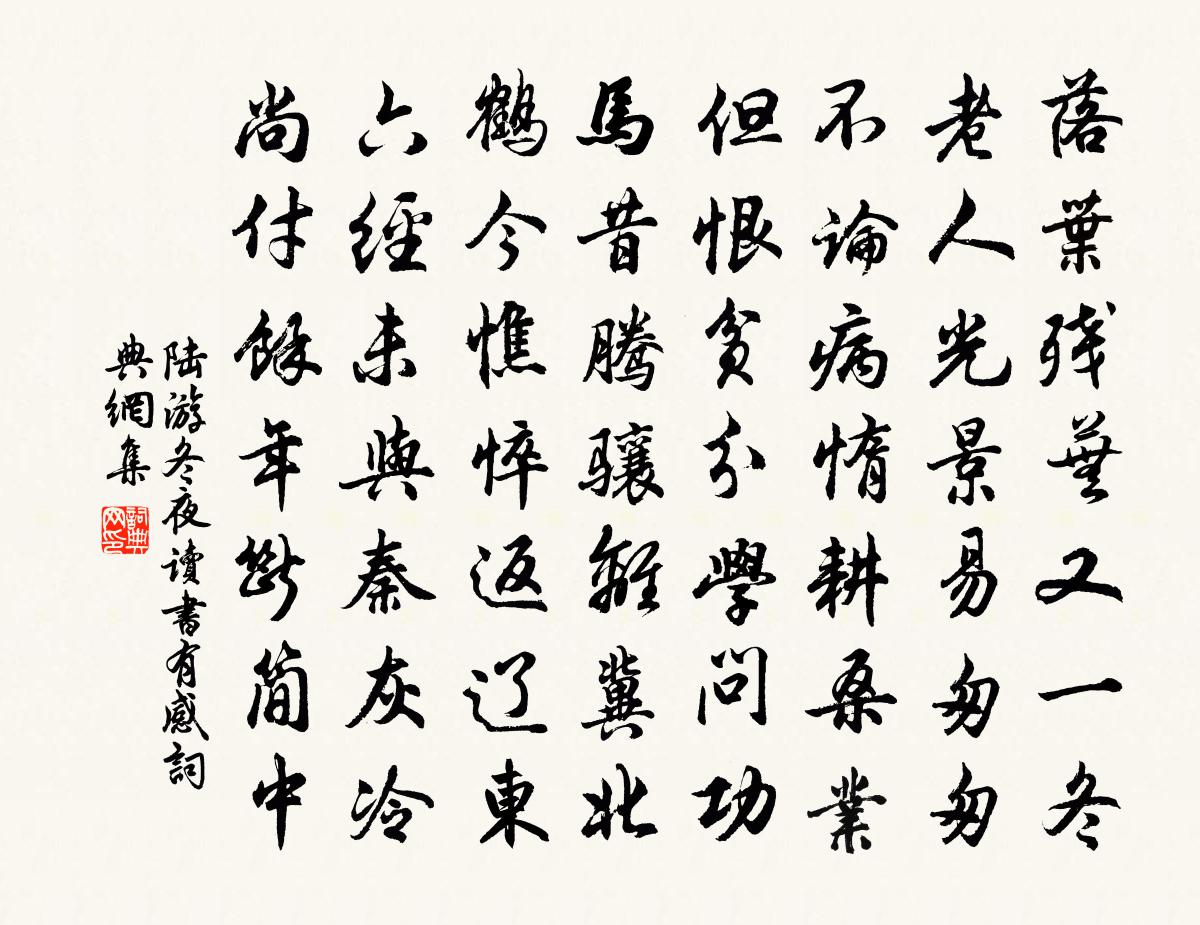 落葉殘蕪又一冬
老人光景易匆匆
不論病惰耕桑業
但恨貧分學問功
馬昔騰驤離冀北
鶴今憔悴返辽東
六經未與秦灰冷
尚付餘年斷简中
陆游冬夜讀書有感詞
典網集
詞典网印